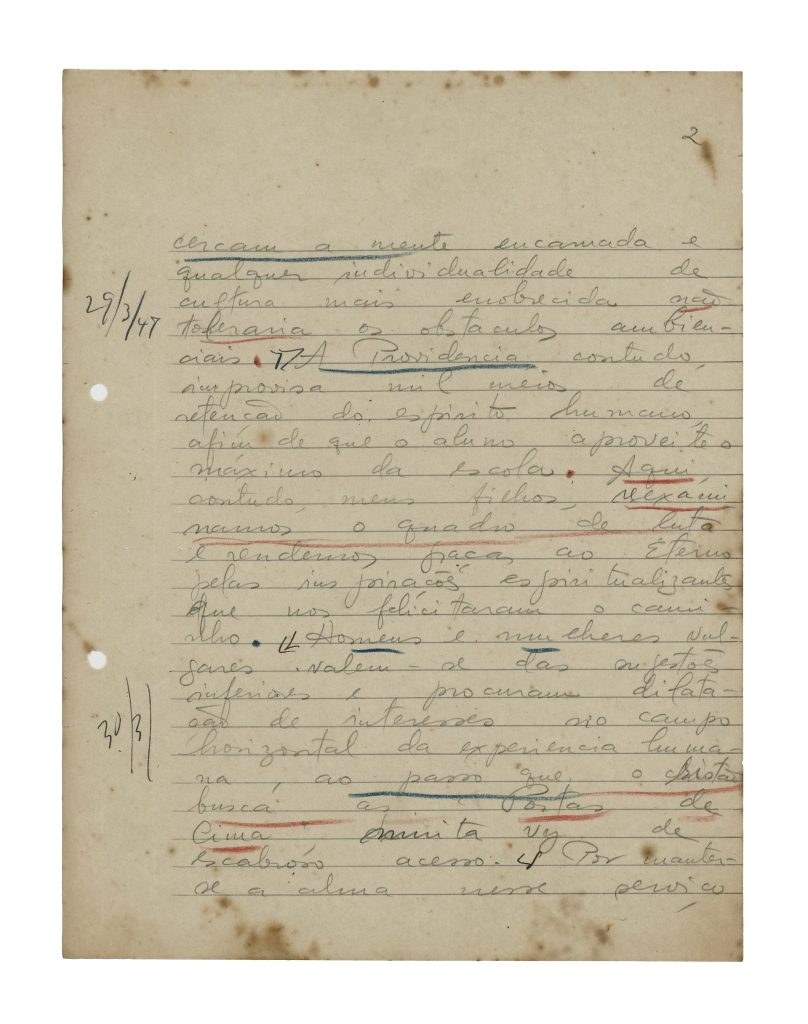 2
cercam a mente encarnada e
qualquer individualidade de
29/3/47
cultura mais enobrecida não
toleraria os obstaculos ambien-
ciais. A Providencia contudo,
improvisa mil meios de
retenção do espirito humano,
afim de que o aluno aproveite o
máximo da escola. Aqui
contudo, meus filhos, reexami
namos o quadro de luta
e rendemos graças ao Eterno
pelas inspirações espiritualizantes
que nos felicitaram o cami-
nho. Homens e mulheres vul-
gares valem-se das sujestões
inferiores e procuram dilata-
30/3/
ção de interesses no campo
horizontal da experiencia huma-
na, ao passo que o cristão
busca as Portas de
Cima muita vez de
escabroso acesso. Por manter-
se a alma nesse serviço